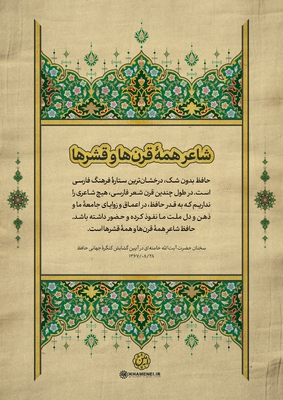 شاعر همهٔ قرن‌ها و قشرها
حافظ بدون شک، درخشان‌ترین ستارهٔ فرهنگ فارسی
است. در طول چندین قرن شعر فارسی، هیچ شاعری را
نداریم که به قدر حافظ، در اعماق و زوایای جامعهٔ ما و
ذهن و دل ملت ما نفوذ کرده و حضور داشته باشد.
حافظ شاعر همهٔ قرن‌ها و همهٔ قشرها است.
سخنان حضرت آیت‌الله خامنه‌ای در آیین گشایش کنگرهٔ جهانی حافظ
۱۳۶۷/۰۸/۲۸
KHAMENEI.IR